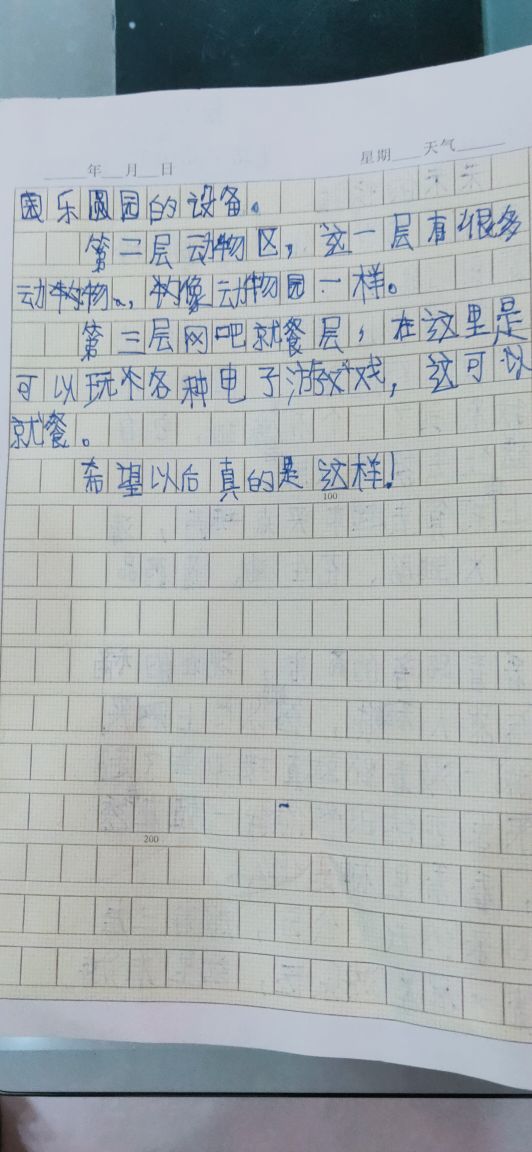 年 月 日 星期 天气
乐园的设备。
第二层动物区，这一层有很多
动物，像动物园一样。
第三层网吧就餐层，在这里是
可以玩各种电子游戏，这可以
就餐。
希望以后真的是这样！
100
200